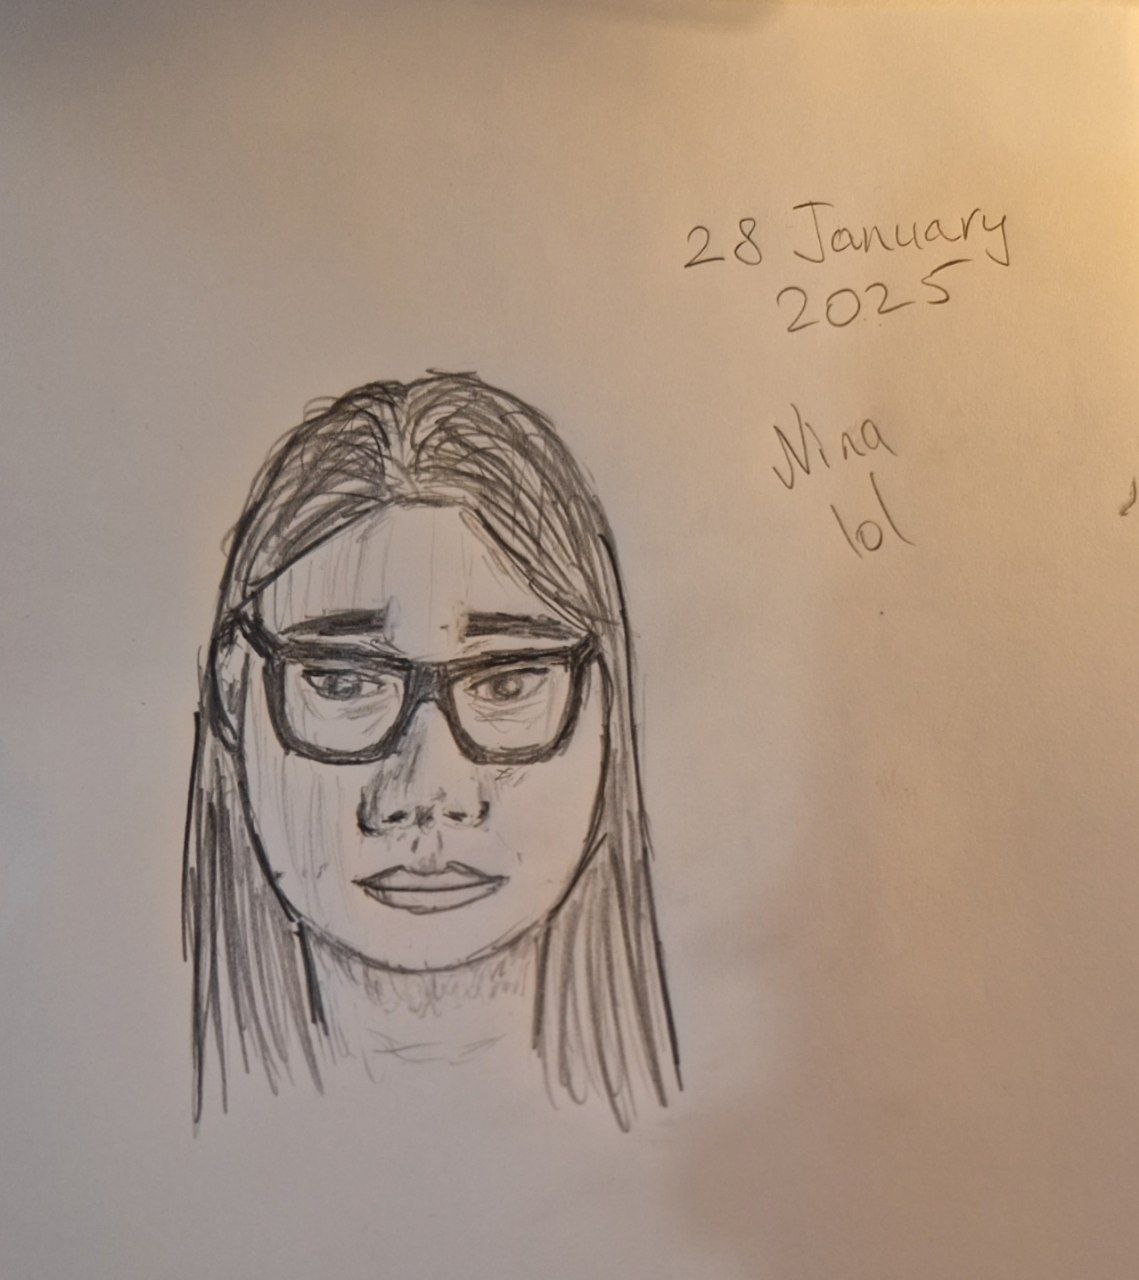 28 January
2025
Nina
lol